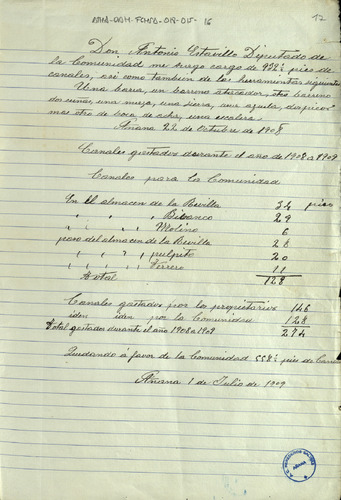 AHA-ODM-FCMSD-018-015-16
17
Don Antonio Estavillo Diputado de
la Comunidad me hago cargo de 932½ pies de
canales, asi como tambien de las herramientas siguientes
Una barra, un barreno aterador, otro barreno
de uñas, una meza, una sierra, una azuela, dos picos
mas otro de boca de acha, una escalera.
Añana 22 de Octubre de 1908
Canales gastados durante el año de 1908 a 1909
Canales para la Comunidad
En El almacen de la Revilla 34 pies
" " " Bibanco 29
" " " Molino 6
paso del almacen de la Revilla 28
" " " pulpito 20
" " " Terrero 11
Total 128
Canales gastados por los propietarios 146
iden iden por la Comunidad 128
Total gastados durante el año 1908 a 1909 274
Quedando á favor de la Comunidad 558½ pies de Canal
Añana 1 de Julio de 1909
AÑANA